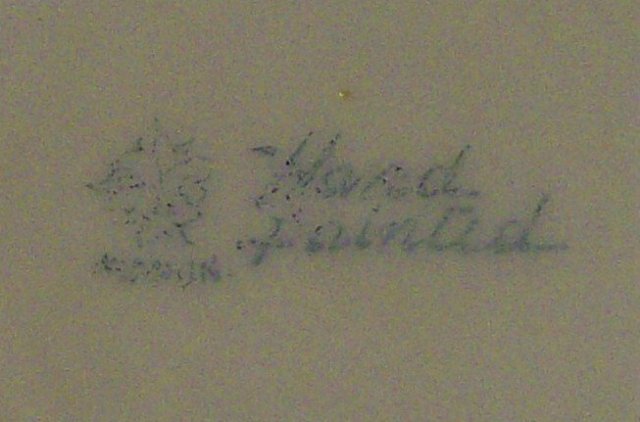 Hand
Painted